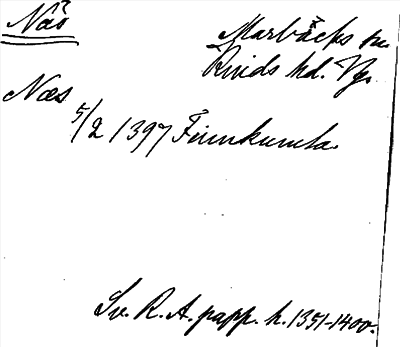 Näs
Marbäcks sn.
Kinds hd. Vg.
Næs
5/2 1397 Finnkumla.
Sv. R. A. papp. h. 1351-1400.